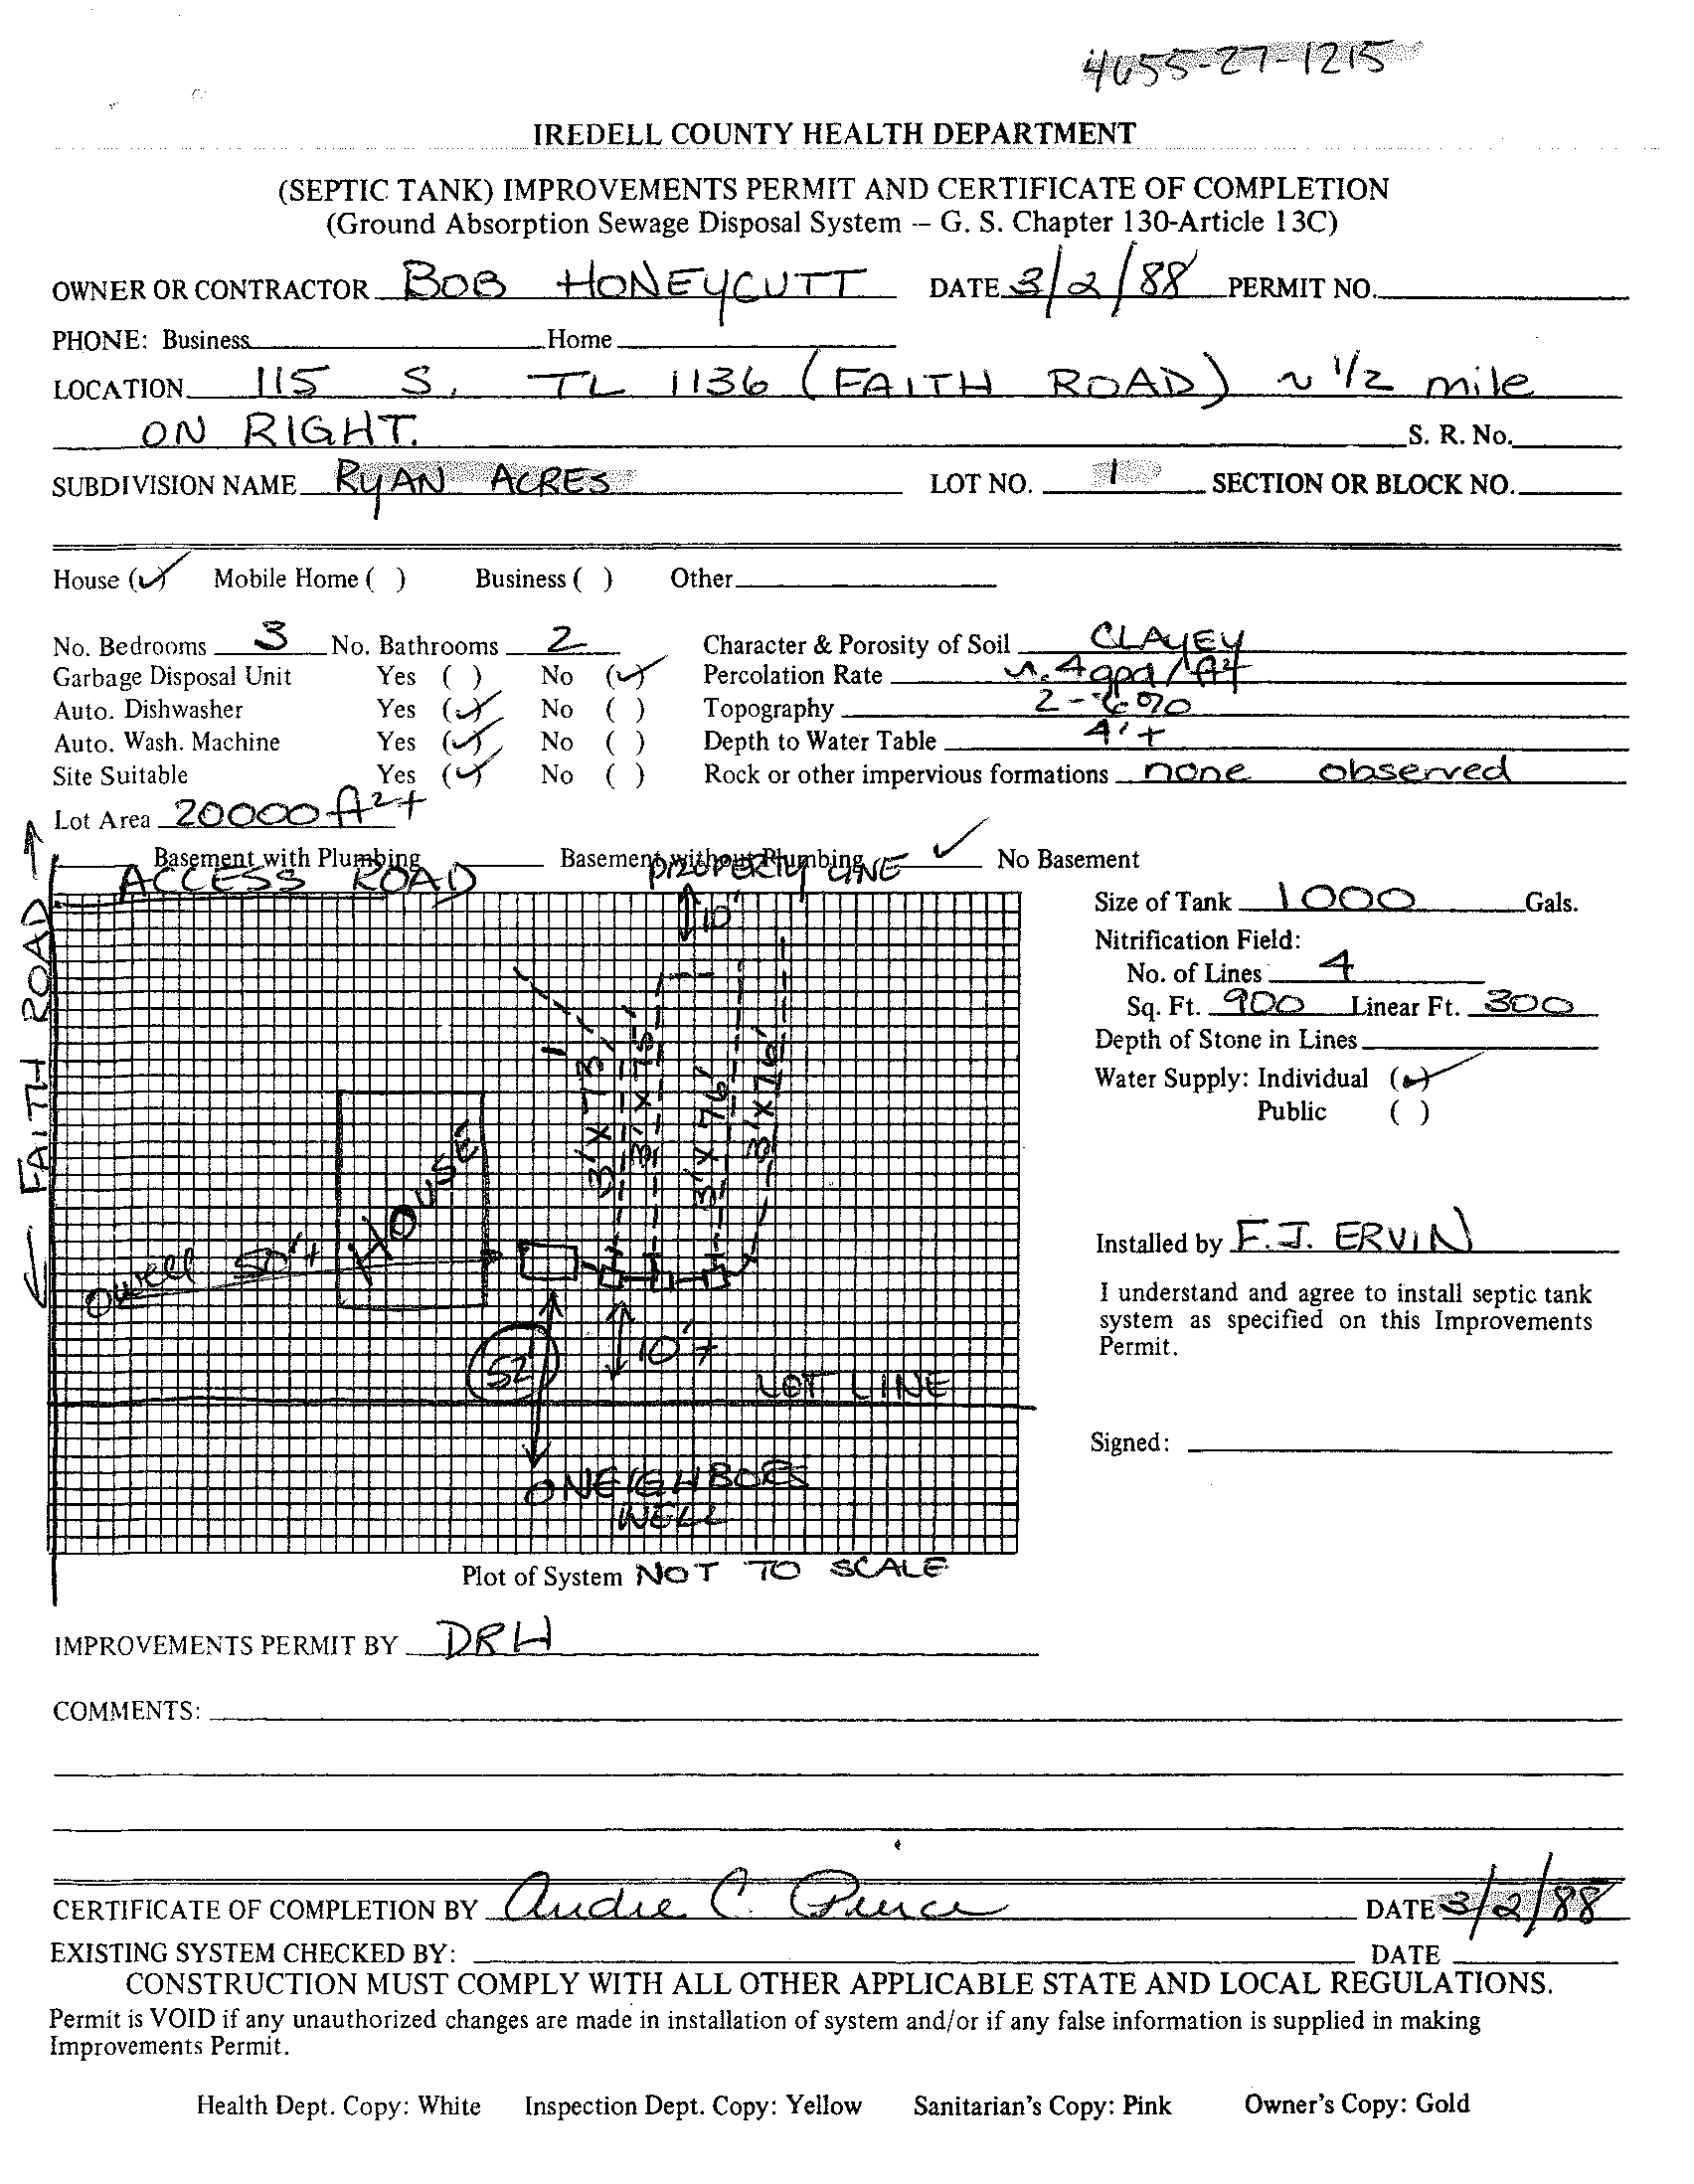 4655-27-1215
IREDELL COUNTY HEALTH DEPARTMENT
(SEPTIC TANK) IMPROVEMENTS PERMIT AND CERTIFICATE OF COMPLETION
(Ground Absorption Sewage Disposal System -- G. S. Chapter 130-Article 13C)
OWNER OR CONTRACTOR BOB HONEYCUTT DATE 3/2/88 PERMIT NO.
PHONE: Business Home
LOCATION 115 S, TL 1136 (FAITH ROAD) ~ 1/2 mile
ON RIGHT. S. R. No.
SUBDIVISION NAME RYAN ACRES LOT NO. 1 SECTION OR BLOCK NO.
House (✓) Mobile Home ( ) Business ( ) Other
No. Bedrooms 3 No. Bathrooms 2 Character & Porosity of Soil CLAYEY
Garbage Disposal Unit Yes ( ) No (✓) Percolation Rate ~.4 gpd/ft²
Auto. Dishwasher Yes (✓) No ( ) Topography 2-6%
Auto. Wash. Machine Yes (✓) No ( ) Depth to Water Table 4'+
Site Suitable Yes (✓) No ( ) Rock or other impervious formations none observed
Lot Area 20000 ft²+
Basement with Plumbing Basement without Plumbing ✓ No Basement
ACCESS ROAD PROPERTY LINE
Size of Tank 1000 Gals.
10'
Nitrification Field:
No. of Lines 4
Sq. Ft. 900 Linear Ft. 300
Depth of Stone in Lines
Water Supply: Individual (✓)
Public ( )
← FAITH ROAD →
3' X 73'
3' X 75'
3' X 76'
3' X 76'
HOUSE
well 50'+
52'
10'+
LOT LINE
NEIGHBORS
WELL
Installed by F.J. ERVIN
I understand and agree to install septic tank
system as specified on this Improvements
Permit.
Signed:
Plot of System NOT TO SCALE
IMPROVEMENTS PERMIT BY DRH
COMMENTS:
CERTIFICATE OF COMPLETION BY Andre C. Pierce DATE 3/2/88
EXISTING SYSTEM CHECKED BY: DATE
CONSTRUCTION MUST COMPLY WITH ALL OTHER APPLICABLE STATE AND LOCAL REGULATIONS.
Permit is VOID if any unauthorized changes are made in installation of system and/or if any false information is supplied in making
Improvements Permit.
Health Dept. Copy: White Inspection Dept. Copy: Yellow Sanitarian's Copy: Pink Owner's Copy: Gold